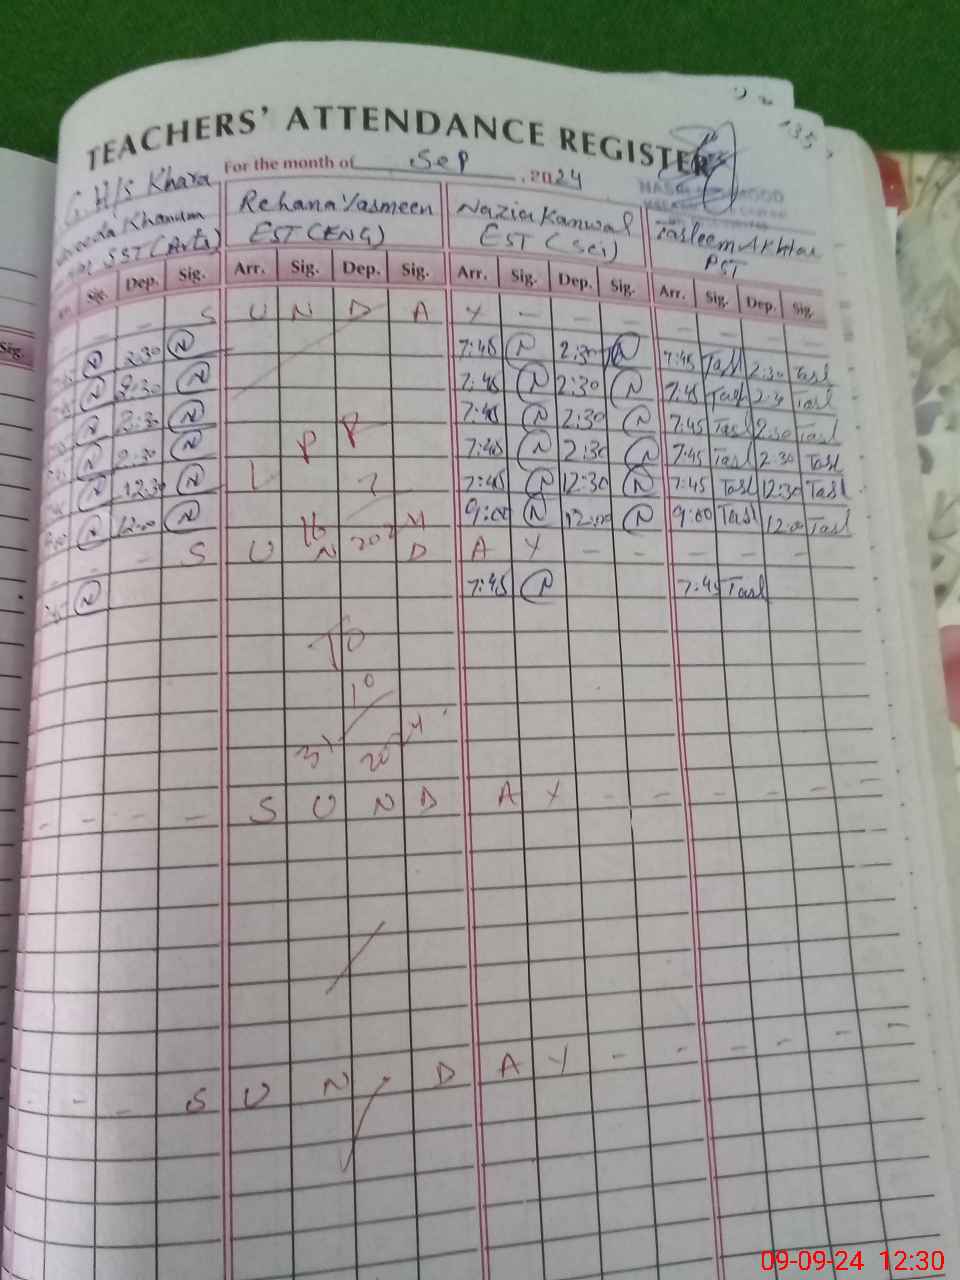 135
TEACHERS' ATTENDANCE REGISTER
For the month of Sep , 2024
G.H/S Khara
Khanum Rehana Yasmeen Nazia Kanwal Tasleem Akhtar
SST (Arts) EST (ENG) EST (Sci) PST
Sig. Dep. Sig. Arr. Sig. Dep. Sig. Arr. Sig. Dep. Sig. Arr. Sig. Dep. Sig.
Sig.
- - S U N D A Y - - - - - - -
N 2:30 N 7:45 N 2:30 N 7:45 Tasl 2:30 Tasl
N 2:30 N 7:45 N 2:30 N 7:45 Tasl 2:3 Tasl
N 2:30 N 7:45 N 2:30 N 7:45 Tasl 2:30 Tasl
N 2:30 N L P R 7:45 N 2:30 N 7:45 Tasl 2:30 Tasl
N 12:30 N 7:45 N 12:30 N 7:45 Tasl 12:30 Tasl
9:00 N 12:00 N 16 7 2024 9:00 N 12:00 N 9:00 Tasl 12:00 Tasl
- - - S U N D A Y - - - - - -
N 7:45 N 7:45 Tasl
To
31 10 2024
- - - - S U N D A Y - - - - - -
- - - S U N D A Y - - - - - -
09-09-24 12:30